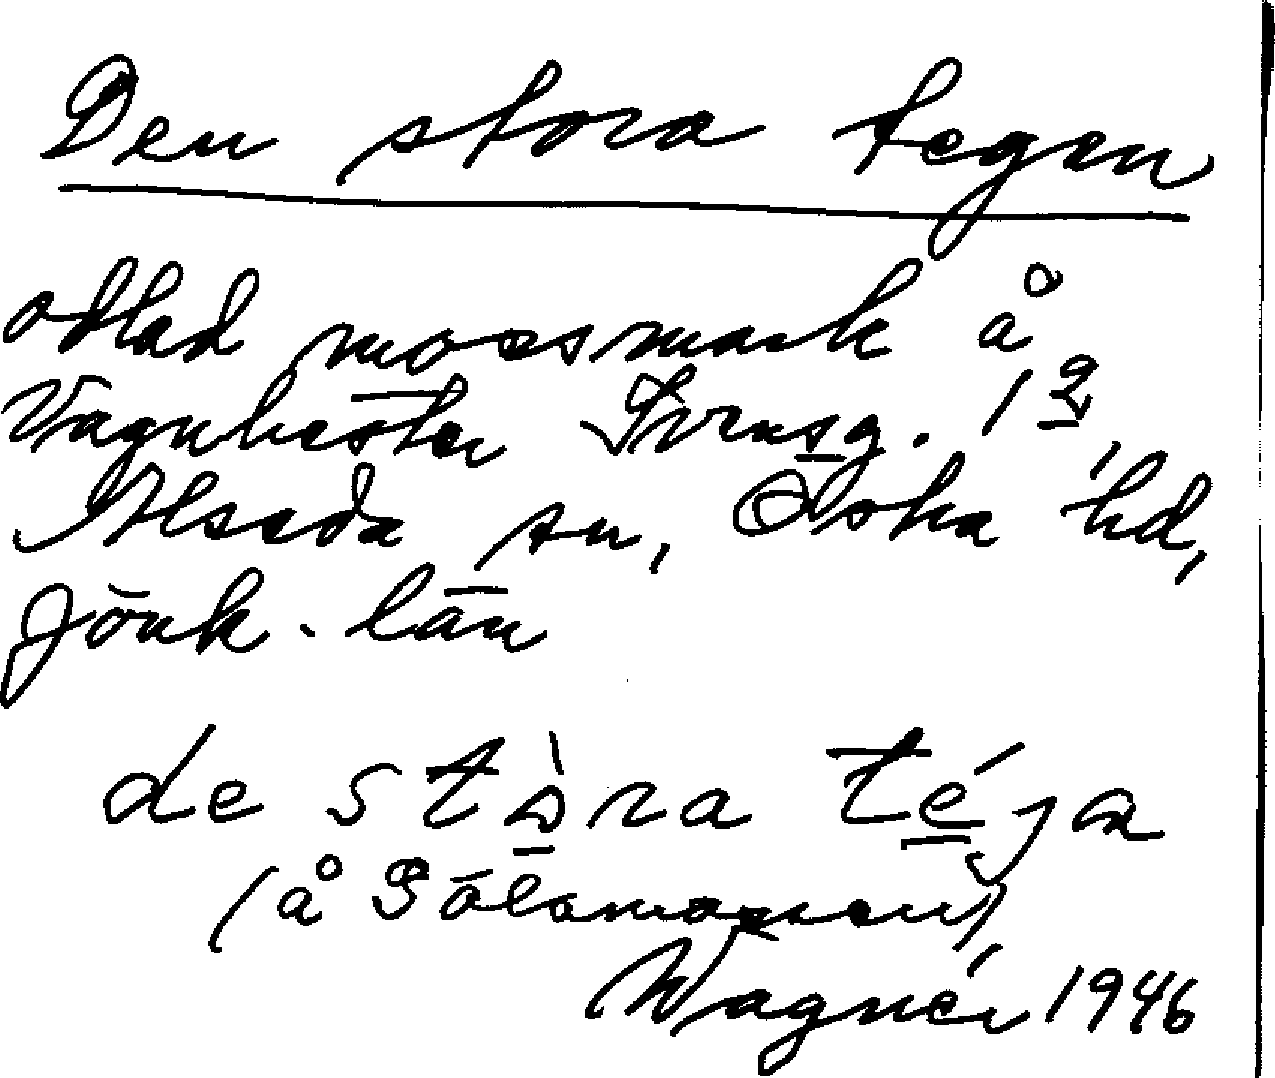 Den stora tegen
odlad mossmark å
Vagnhester Svensg. 1 2,
Alseda sn, Östra hd,
Jönk. län
de stòra téja
(å Sölamossen)
Wagnér 1946